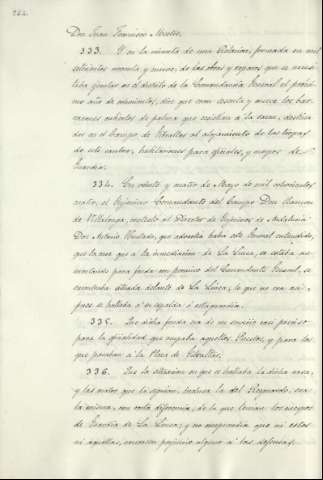 264.
Don Juan Francisco Mestre.
333. Y en la minuta de una relacion, formada en mil
setecientos noventa y nueve, de las obras y reparos que se necesi-
taba ejecutar en el distrito de la Comandancia General el proxi-
mo año de ochocientos, dice que eran sesenta y nueve los bar-
racones cubiertos de palma que existian a la sazon, destina-
dos en el Campo de Gibraltar al alojamiento de las tropas
de este canton, habitaciones para gefes, y cuerpos de
Guardia.
334. En veinte y cuatro de Mayo de mil ochocientos
cuatro, el Ingeniero Comandante del Campo Don
de Villalonga, contestó al Director de Ingenieros de Andalucia
Don Antonio Hurtado, que advertia haber este General entendido,
que la casa que a la inmediacion de La Linea, se estaba
construyendo para fonda con permiso del Comandante General, se
encontraba situada delante de La Linea, lo que no era asi,
pues se hallaba a su espalda ó retaguardia.
335. Que dicha fonda era de un servicio casi preciso
para la oficialidad que ocupaba aquellos Puestos, y para los
que pasaban a la Plaza de Gibraltar.
336. Que la situacion en que se hallaba la dicha casa,
y las chozas que la seguian, incluso la del Resguardo, era
la misma, con corta diferencia, de la que tenian los cuerpos
de Guardia de La Linea; y no comprendia que ni estos
ni aquellas, causasen perjuicio alguno a las defensas.